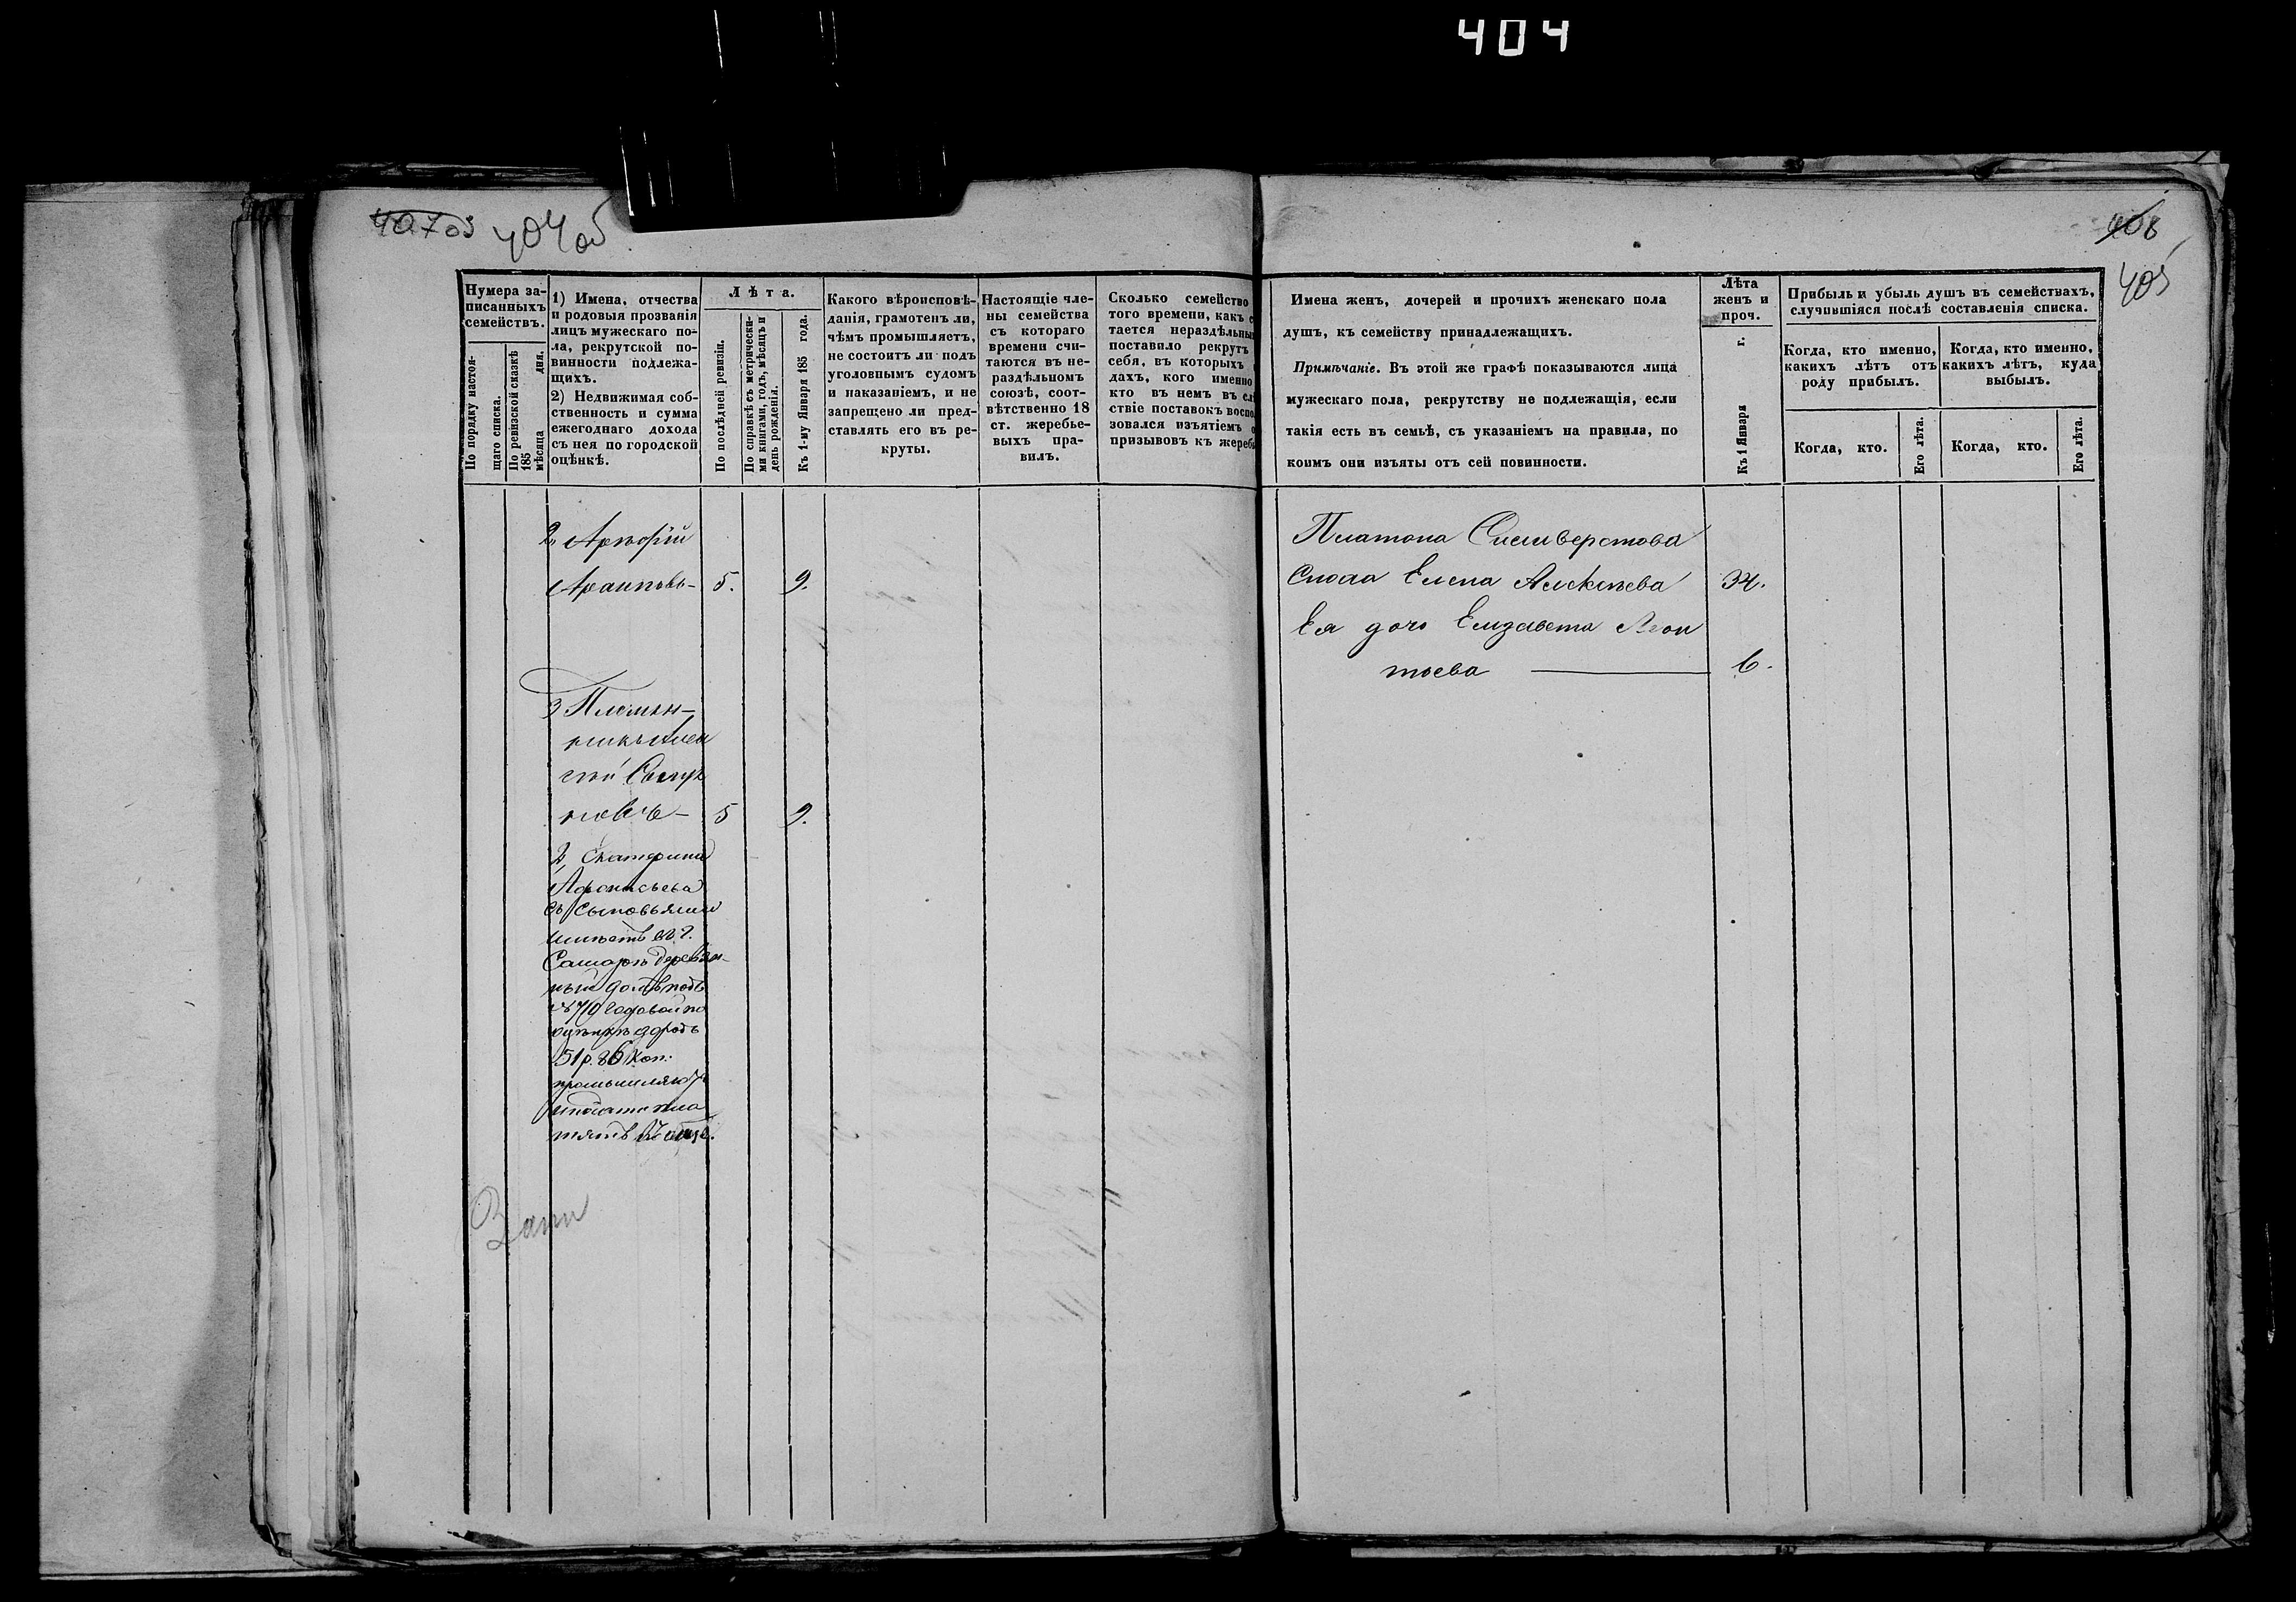 404
407об 404об
Нумера за-
писанныхъ
семействъ.
По порядку настоя-
щаго списка.
По ревизской сказкѣ
185 дня.
мѣсяца
1) Имена, отчества
и родовыя прозванія
лицъ мужескаго по-
ла, рекрутской по-
винности подлежа-
щихъ.
2) Недвижимая соб-
ственность и сумма
ежегоднаго дохода
съ нея по городской
оцѣнкѣ.
Лѣта.
По послѣдней ревизіи.
По справкѣ съ метрически-
ми книгами, годъ, мѣсяцъ и
день рожденія.
Къ 1-му Января 185 года.
Какого вѣроисповѣ-
данія, грамотенъ ли,
чѣмъ промышляетъ,
не состоитъ ли подъ
уголовнымъ судомъ
и наказаніемъ, и не
запрещено ли пред-
ставлять его въ ре-
круты.
Настоящіе чле-
ны семейства
съ котораго
времени счи-
таются въ не-
раздѣльномъ
союзѣ, соот-
вѣтственно 18
ст. жеребье-
выхъ пра-
вилъ.
Сколько семейство
того времени, какъ с
тается нераздѣльны
поставило рекрутъ
себя, въ которыхъ
дахъ, кого именно
кто въ немъ въ слѣ
ствіе поставокъ воспо
зовался изъятіемъ о
призывовъ къ жереб
2,
Араповъ- 5. 9.
3 Племян-
никъ Алек
сѣй
новъ - 5 9.
2, Екатерина
Афонасьева
съ сыновьями
имѣетъ въ г.
Самарѣ деревян-
ный домъ подъ
№ 719 годовой по
оцѣнкѣ доходъ
51 р. 86 коп.
промышляютъ
и подати пла
тятъ
408
405
Имена женъ, дочерей и прочихъ женскаго пола
душъ, къ семейству принадлежащихъ.
Примѣчаніе. Въ этой же графѣ показываются лица
мужескаго пола, рекрутству не подлежащія, если
такія есть въ семьѣ, съ указаніемъ на правила, по
коимъ они изъяты отъ сей повинности.
Лѣта
женъ и
проч.
Къ 1 Января г.
Прибыль и убыль душъ въ семействахъ,
случившіяся послѣ составленія списка.
Когда, кто именно,
какихъ лѣтъ отъ
роду прибылъ.
Когда, кто именно,
какихъ лѣтъ, куда
выбылъ.
Когда, кто.
Его лѣта.
Когда, кто.
Его лѣта.
Платона Сильверстова
Сноха Елена Алексѣева 34.
Ея дочь Елизавета Леон
тьева 6.